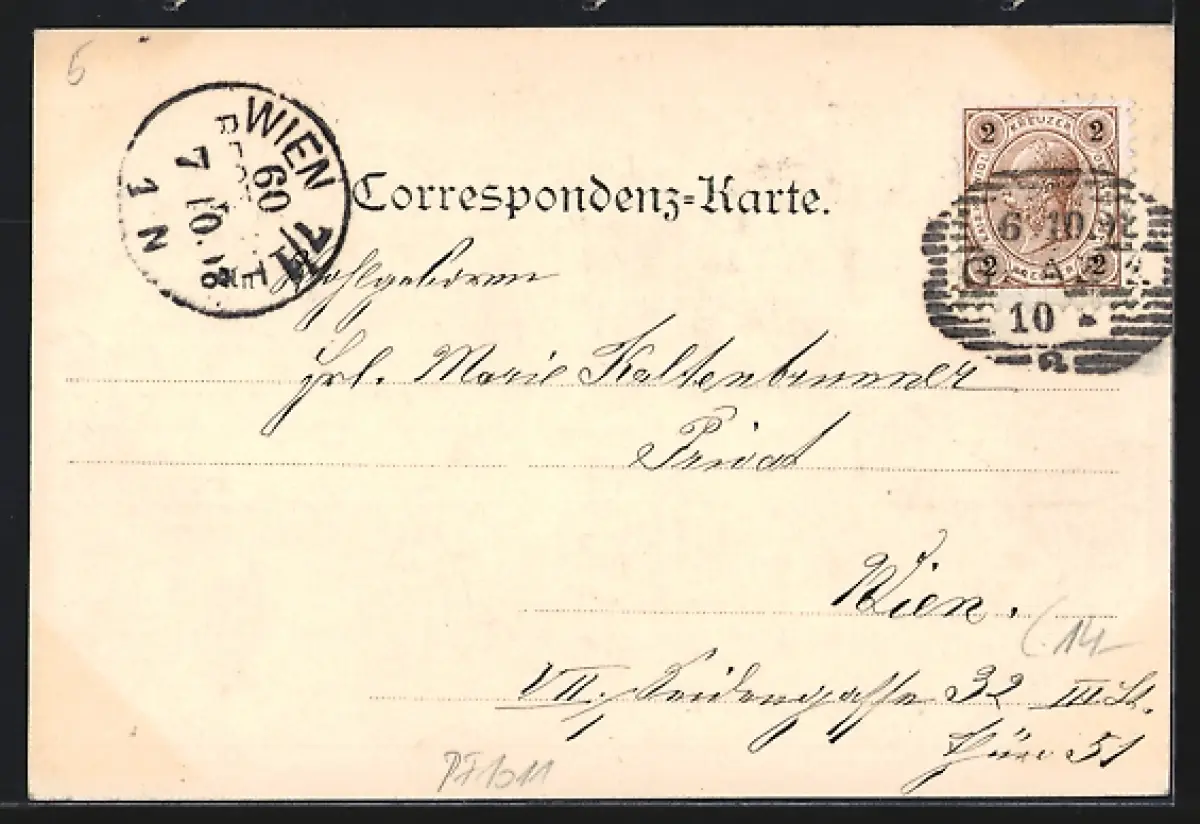 5
WIEN 7/1
60
7 10. 8
1 N
Correspondenz-Karte.
2 KREUZER 2
2 2
6 10
10
2
Wohlgeboren
Frl. Marie Kaltenbrunner
Privat
Wien.
14
VII. Seidengasse 32 III. St.
Thür 51